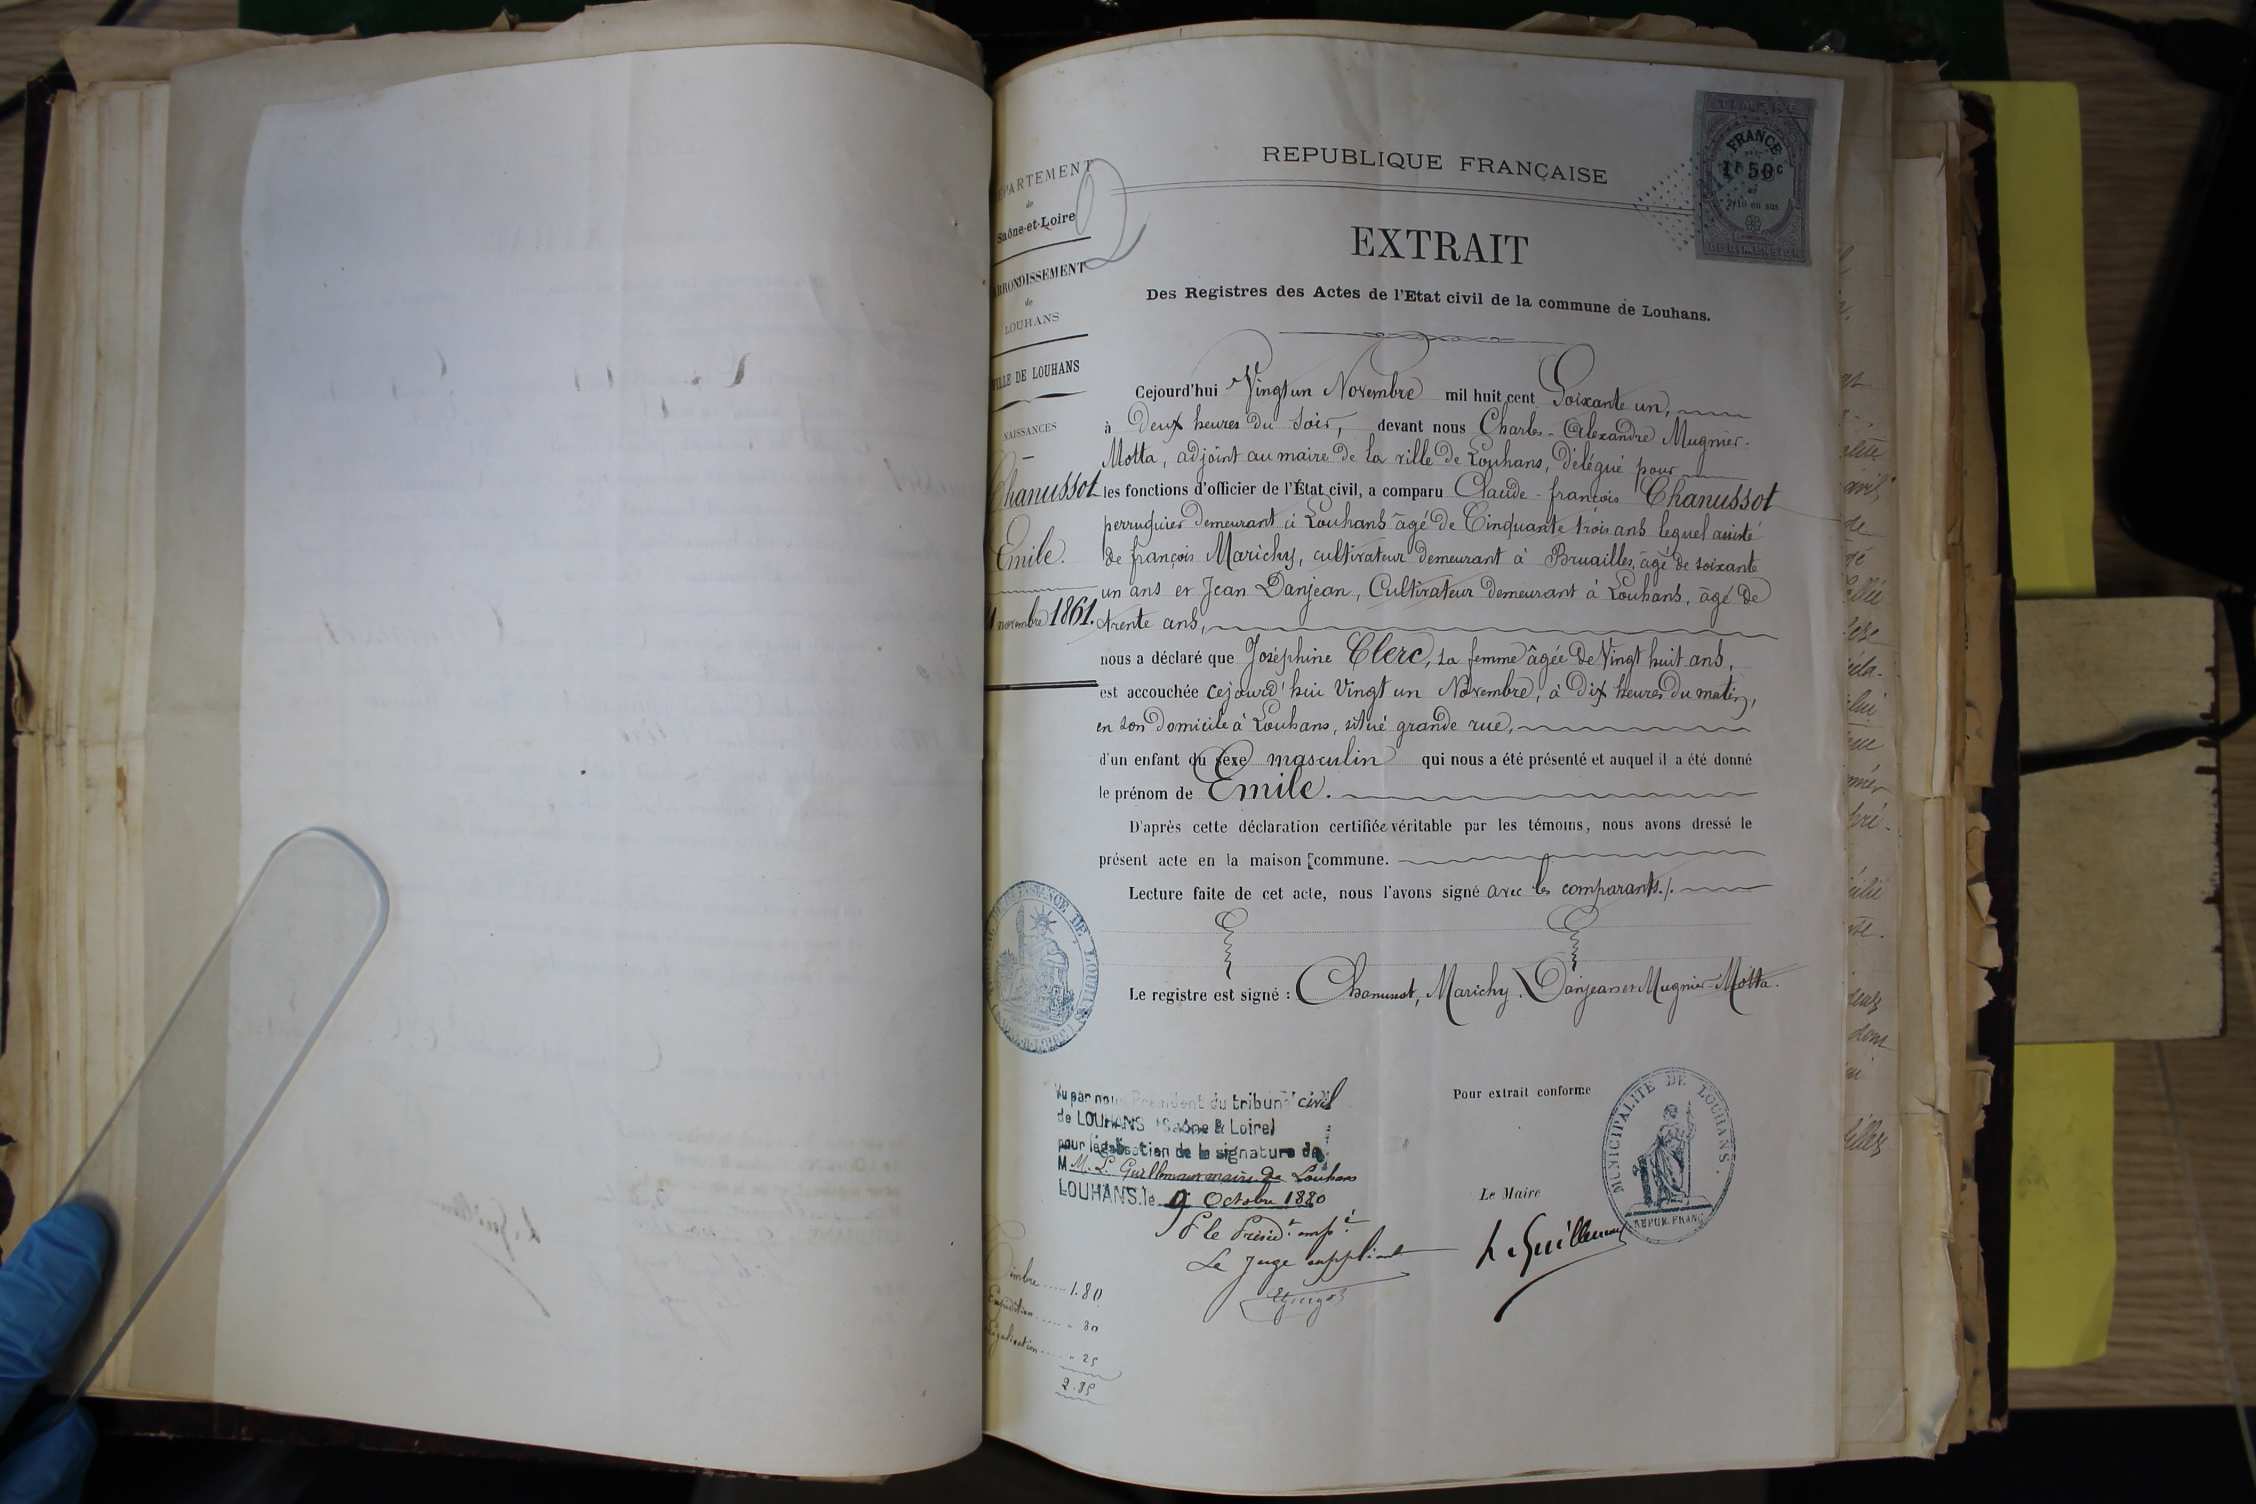 DEPARTEMENT
de
Saône-et-Loire
ARRONDISSEMENT
de
LOUHANS
VILLE DE LOUHANS
NAISSANCES
Chanussot
Emile.
novembre 1861.
REPUBLIQUE FRANÇAISE
FRANCE
1F 50c
2/10 en sus
EXTRAIT
Des Registres des Actes de l'Etat civil de la commune de Louhans.
Cejourd'hui Vingt un Novembre mil huit cent Soixante un,
à Deux heures du Soir, devant nous Charles-Alexandre Mugnier-
Motta, adjoint au maire de la ville de Louhans, délégué pour
les fonctions d'officier de l'État civil, a comparu Claude-françois Chanussot
perruquier demeurant à Louhans âgé de Cinquante trois ans lequel assisté
de françois Marichy, cultivateur demeurant à Bruailles, âgé de soixante
un ans et Jean Danjean, Cultivateur demeurant à Louhans, âgé de
trente ans,
nous a déclaré que Joséphine Clerc, sa femme âgée de Vingt huit ans,
est accouchée cejourd'hui Vingt un Novembre, à Dix heures du matin,
en son domicile à Louhans, situé grande rue,
d'un enfant du sexe masculin qui nous a été présenté et auquel il a été donné
le prénom de Emile.
D'après cette déclaration certifiée véritable par les témoins, nous avons dressé le
présent acte en la maison commune.
Lecture faite de cet acte, nous l'avons signé avec les comparants./.
Le registre est signé : Chanussot, Marichy, Danjean et Mugnier-Motta.
Vu par nous Président du tribunal civil
de LOUHANS (Saône & Loire)
pour légalisation de la signature de
M M. L. Guillemaut maire de Louhans
LOUHANS, le 9 Octobre 1880
P le Présidt. empé
Le Juge suppléant
Pour extrait conforme
Le Maire
L. Guillemaut
MUNICIPALITÉ DE LOUHANS.
RÉPUB. FRANÇ.
Timbre ..... 1.80
Expédition ..... " 80
Légalisation ..... " 25
2.85